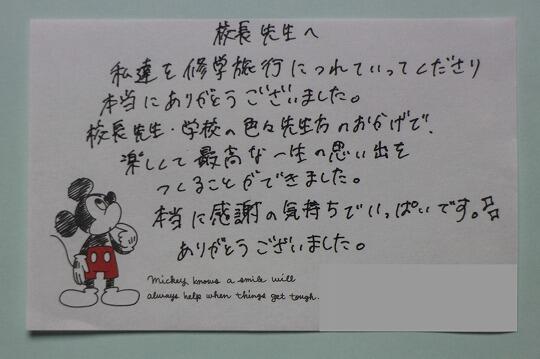 校長先生へ
私達を修学旅行につれていってくださり
本当にありがとうございました。
校長先生・学校の色々先生方のおかげで、
楽しくて最高な一生の思い出を
つくることができました。
本当に感謝の気持ちでいっぱいです。
ありがとうございました。
Mickey knows a smile will
always help when things get tough.